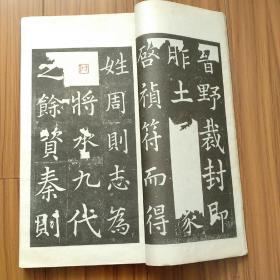 野裁封即
胙土　家
啓禎符而得
姓周則志為
將承九代
之餘資秦則